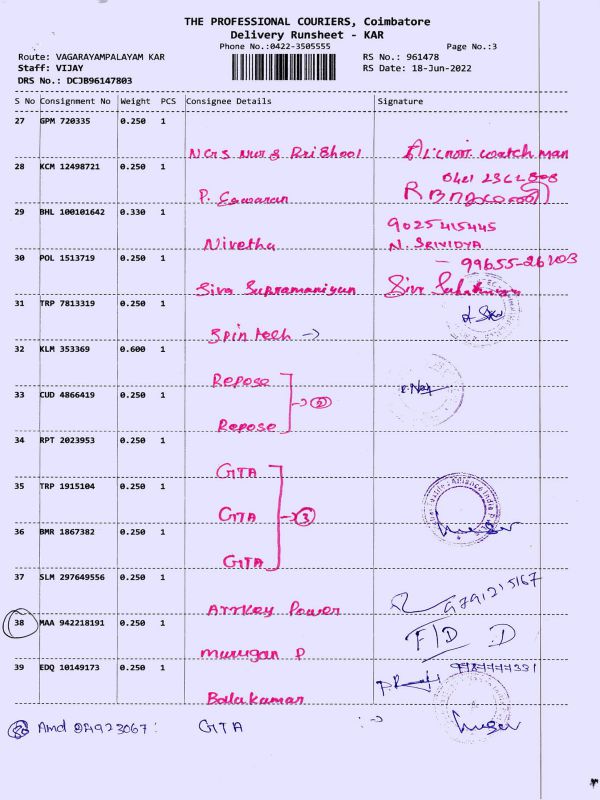 THE PROFESSIONAL COURIERS, Coimbatore
Delivery Runsheet - KAR
Phone No.:0422-3505555
Page No.:3
Route: VAGARAYAMPALAYAM KAR
RS No.: 961478
Staff: VIJAY
RS Date: 18-Jun-2022
DRS No.: DCJB96147803
S No Consignment No Weight PCS Consignee Details Signature
27 GPM 720335 0.250 1
watch man
28 KCM 12498721 0.250 1
P.
29 BHL 100101642 0.330 1
9025415445
Nivetha N. SRIVIDYA
30 POL 1513719 0.250 1
Siva Supramaniyan Siva
31 TRP 7813319 0.250 1
Spin tech →
32 KLM 353369 0.600 1
Repose
33 CUD 4866419 0.250 1
Repose
34 RPT 2023953 0.250 1
GITA
35 TRP 1915104 0.250 1
GITA 3
36 BMR 1867382 0.250 1
GITA
37 SLM 297649556 0.250 1
9791215167
Power
38 MAA 942218191 0.250 1
F/D D
Murugan P
39 EDQ 10149173 0.250 1
Balakumar
Amd : GITA